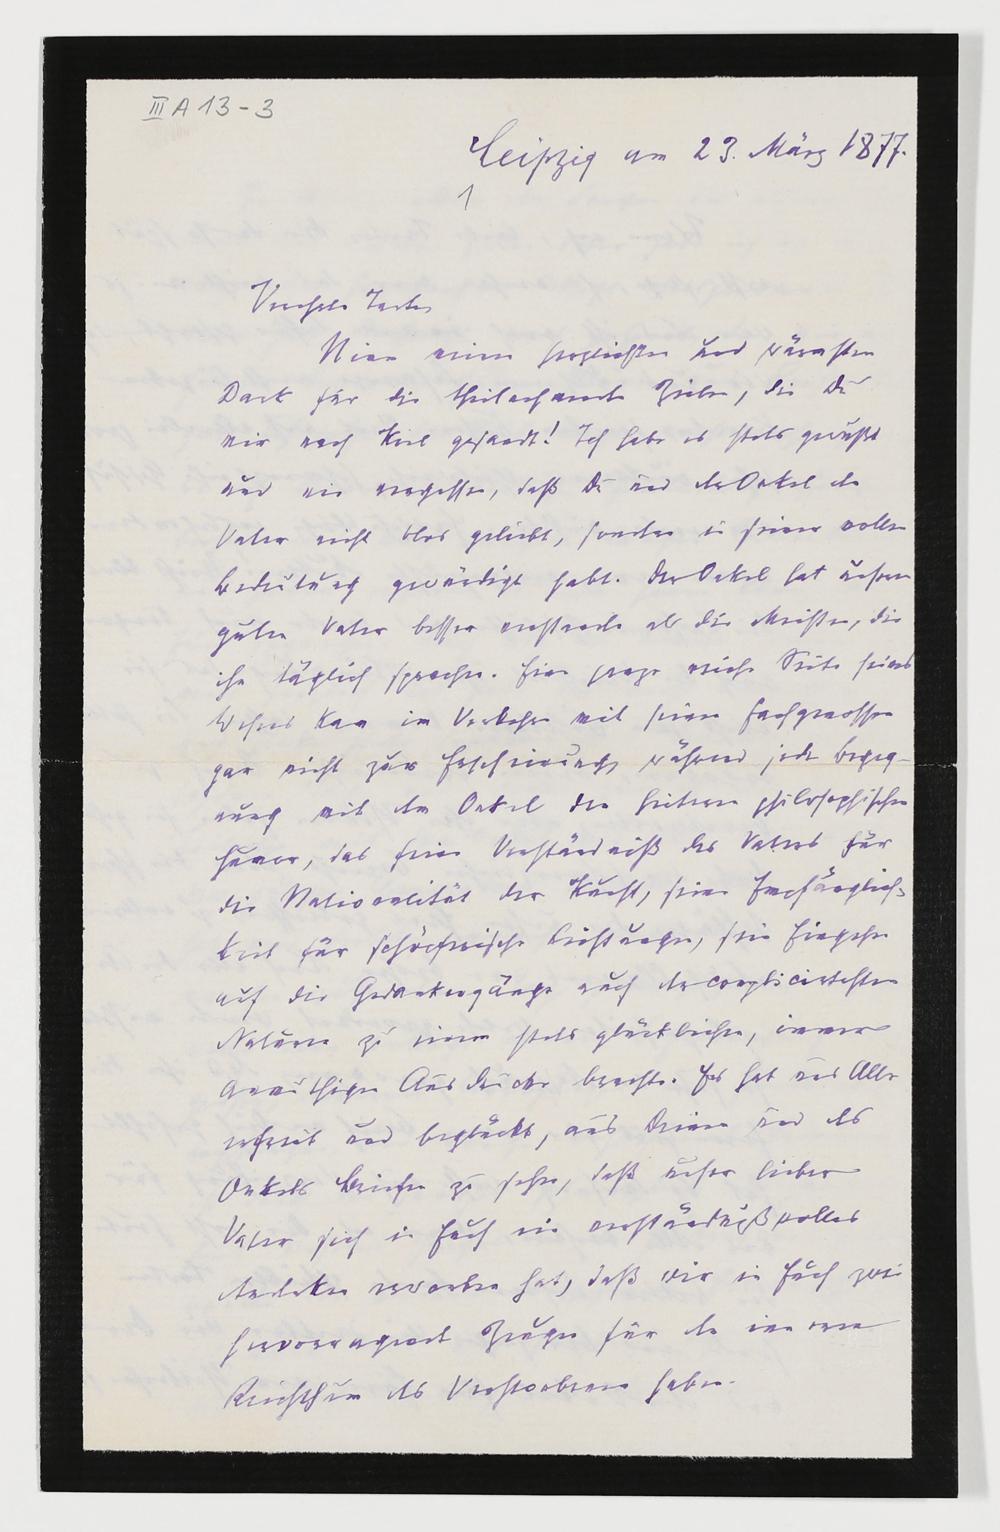 III A 13-3
Leipzig am 23. März 1877.
1
Verehrte Tante
Nimm meinen herzlichsten und wärmsten
Dank für die theilnehmenden Zeilen, die Du
mir nach Kiel gesandt! Ich habe es stets gewußt
und nie vergessen, daß Du und der Onkel den
Vater nicht blos geliebt, sondern in seiner vollen
Bedeutung gewürdigt habt. Der Onkel hat unsern
guten Vater besser verstanden als die Meisten, die
ihn täglich sprachen. Eine ganze reiche Seite seines
Wesens kam im Verkehr mit seinen Fachgenossen
gar nicht zur Erscheinung, während jede Begeg-
nung mit dem Onkel den heiteren philosophischen
Humor, das feine Verständniß des Vaters für
die Nationalität der Kunst, seine Empfänglich-
keit für schöpferische Leistungen, sein Eingehen
auf die Gedankengänge auch der complicirtesten
Naturen zu einem stets glücklichen, immer
anmuthigen Ausdrucke brachte. Es hat uns Alle
erfreut und beglückt, aus Deinen und des
Onkels Briefen zu sehen, daß unser lieber
Vater sich in Euch ein verständnißvolles
Andenken erworben hat, daß wir in Euch zwei
hervorragende Zeugen für den inneren
Reichthum des Verstorbenen haben.